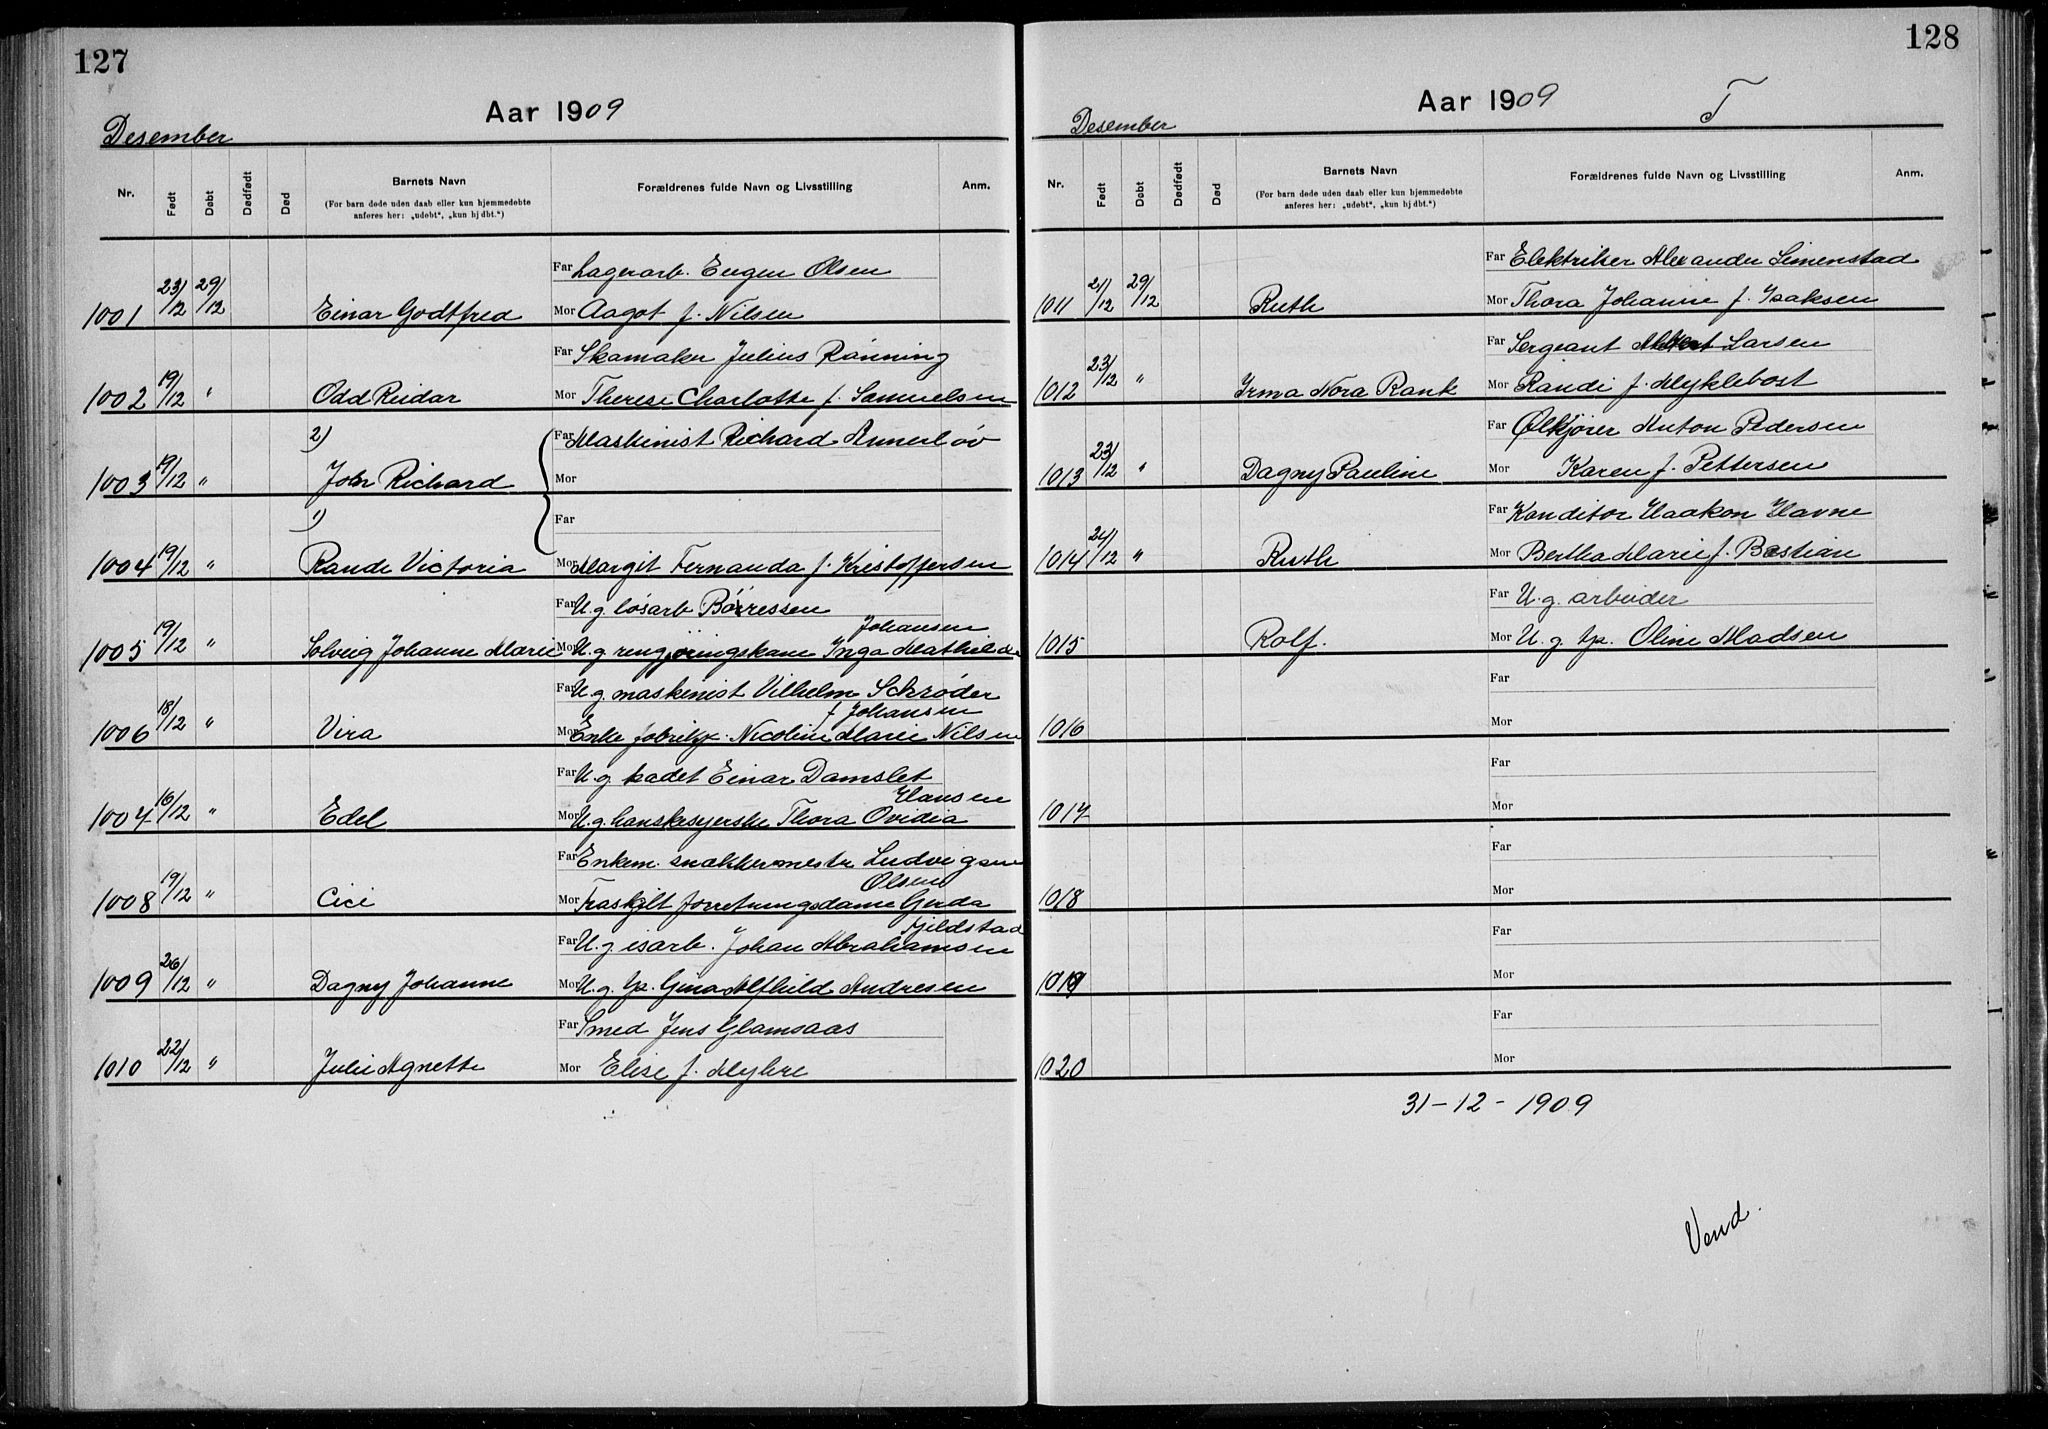 127
Aar 1909
Desember
Nr. Født Døbt Dødfødt Død Barnets Navn Forældrenes fulde Navn og Livsstilling Anm.
(For barn døde uden daab eller kun hjemmedøbte
anføres her: „udøbt“, „kun hj dbt.“)
Far Lagerarb. Eugen Olsen
1001 23/12 29/12 Einar Godtfred Mor Aagot f. Nilsen
Far Skomaker Julius Rønning
1002 19/12 " Odd Reidar Mor Therese Charlotte f. Samuelsen
2) Far Maskinist Richard Annerløv
1003 19/12 " John Richard Mor
1) Far
1004 19/12 " Rande Victoria Mor Margit Fernanda f. Kristoffersen
Far U.g. løsarb Børressen
Johansen
1005 19/12 " Solveig Johanne Marie Mor U.g rengjøringskone Inga Mathilde
Far U.g. maskinist Vilhelm Schrøder
f Johansen
1006 18/12 " Vira Mor Enke Nicoline Marie Nilsen
Far U.g. kadet Einar Damslet
Hansen
1007 16/12 " Edel Mor U.g. hanskesyerske Thora Ovidia
Far Enkem. snekkermester Ludvigsen
Olsen
1008 19/12 " Cici Mor Fraskilt forretningsdame Gerda
Kjildstad
Far U.g isarb. Johan Abrahamsen
1009 26/12 " Dagny Johanne Mor U.g. tp. Gina Alfhild Andresen
Far Smed Jens Glamsaas
1010 22/12 " Julie Agnette Mor Elise f. Myhre
128
Aar 1909 T
Desember
Nr. Født Døbt Dødfødt Død Barnets Navn Forældrenes fulde Navn og Livsstilling Anm.
(For barn døde uden daab eller kun hjemmedøbte
anføres her: „udøbt“, „kun hj dbt.“)
Far Elektriker Alexander Simenstad
1011 21/12 29/12 Ruth Mor Thora Johanne f. Isaksen
Far Sergeant Larsen
1012 23/12 " Irma Nora Rank Mor Randi f. Myklebost
Far Ølkjører Anton Pedersen
1013 23/12 " Dagny Pauline Mor Karen f. Pettersen
Far Konditor Haakon Havne
1014 24/12 " Ruth Mor Bertha Marie f. Bastian
Far U.g. arbeider
1015 Rolf. Mor U.g. tp. Oline Madsen
Far
1016 Mor
Far
1017 Mor
Far
1018 Mor
Far
1019 Mor
Far
1020 Mor
31-12-1909
Vend.